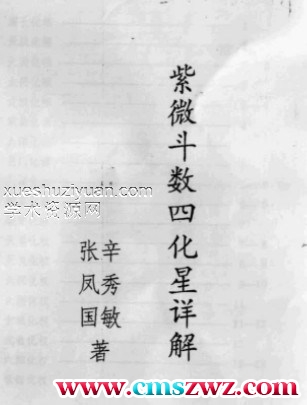 紫微斗数四化星详解
辛秀敏
张凤国
著
xueshuziyuan.com
学术资源网
www.cmszwz.com